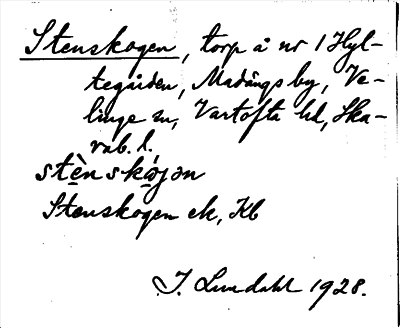 Stenskogen, torp å nr 1 Hyl-
tegården, Madängs by, Ve-
linge sn, Vartofta hd, Ska-
rab. l.
stèn skójən
Stenskogen ek, Kb
J. Lundahl 1928.